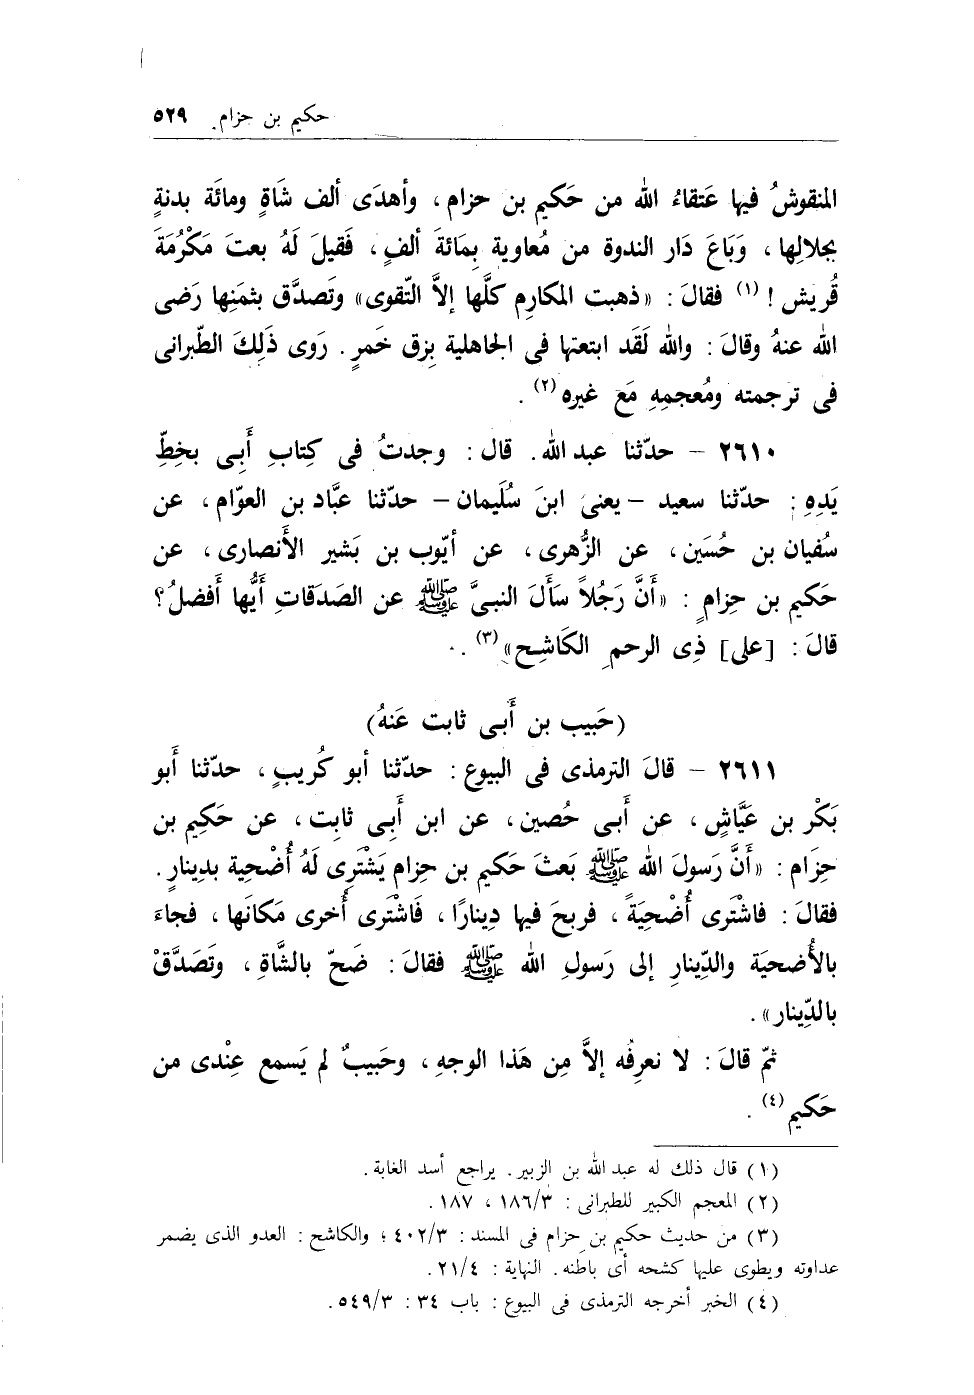 حكيم بن حزام. ٥٢٩
المنقوشُ فيها عَتقاءُ الله من حَكيم بن حزام ، وأهدَى ألف شَاةٍ ومائَة بدنةٍ
بجلالِها ، وَبَاعَ دَار الندوة من مُعاوية بِمَائةَ ألفٍ ، فَقيلَ لَهُ بعتَ مَكْرُمَةَ
قُريش ! (١) فقالَ : «ذهبت المكارِم كلَّها إلاَّ التّقوى» وتَصدَّق بثمنِها رَضى
الله عنهُ وقالَ : والله لَقَد ابتعتها فى الجاهلية بِزق خَمرٍ . رَوى ذَلِكَ الطّبرانى
فى ترجمته ومُعجمِهِ مَع غيره (٢) .
٢٦١٠ – حدّثنا عبد الله . قال : وجدتُ فى كِتابِ أَبِى بخِطِّ
يَدِهِ : حدّثنا سعيد – يعنى ابنَ سُلَيمان – حدّثنا عبَّاد بن العوّام ، عن
سُفيان بن حُسَين ، عن الزُّهرى ، عن أيّوب بن بَشير الأَنصارى ، عن
حَكيم بن حِزامٍ : «أَنَّ رَجُلاً سَأَلَ النبىَّ ﷺ عن الصَدَقاتِ أَيُّها أَفضلُ ؟
قالَ : [على] ذِى الرحمِ الكَاشِح» (٣) .
(حَبيب بن أَبى ثابت عَنهُ)
٢٦١١ – قالَ الترمذى فى البيوع : حدّثنا أبو كُريبٍ ، حدّثنا أَبو
بَكْر بن عَيَّاشٍ ، عن أَبى حُصين ، عن ابن أَبِى ثابِت ، عن حَكِيم بن
حِزَام : «أَنَّ رَسولَ الله ﷺ بَعثَ حَكيم بن حِزام يَشْتَرِى لَهُ أُضْحِية بدِينارٍ .
فقالَ : فاشْتَرى أُضْحِيَةً ، فربحَ فيها دِينارًا ، فَاشْتَرى أُخرى مَكانَها ، فجاءَ
بالأُضحيَة والدِّينارِ إلى رَسولِ الله ﷺ فقالَ : ضَحّ بالشَّاةِ ، وتَصَدَّقْ
بالدِّينار» .
ثمّ قالَ : لا نعرِفُه إلاَّ مِن هَذا الوجهِ ، وحَبيبٌ لم يَسمع عِنْدى من
حَكيم (٤) .
(١) قال ذلك له عبد الله بن الزبير . يراجع أسد الغابة .
(٢) المعجم الكبير للطبرانى : ١٨٦/٣ ، ١٨٧ .
(٣) من حديث حكيم بن حزام فى المسند : ٤٠٢/٣ ؛ والكاشح : العدو الذى يضمر
عداوته ويطوى عليها كشحه أى باطنه . النهاية : ٢١/٤ .
(٤) الخبر أخرجه الترمذى فى البيوع : باب ٣٤ : ٥٤٩/٣ .